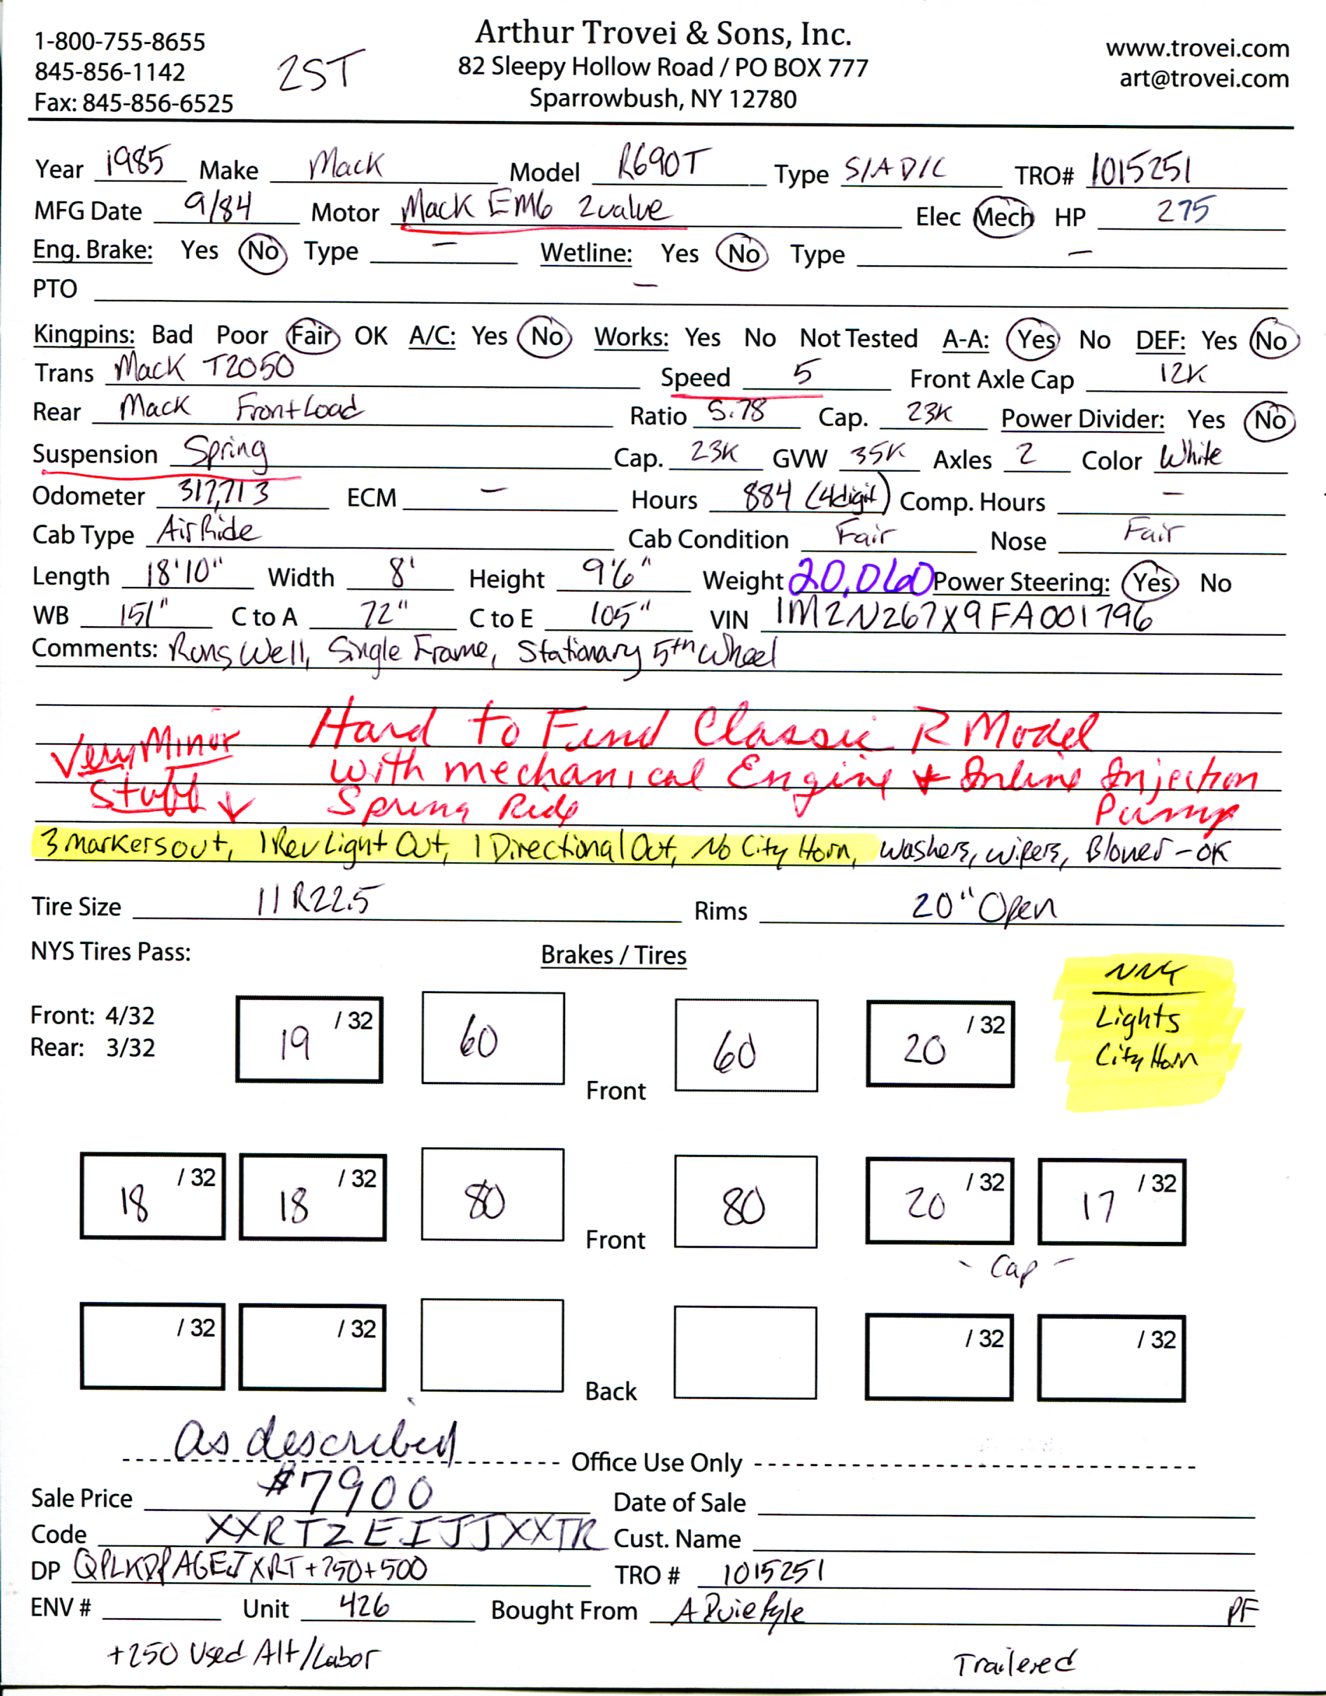 1-800-755-8655
845-856-1142
Fax: 845-856-6525
2ST
Arthur Trovei & Sons, Inc.
82 Sleepy Hollow Road / PO BOX 777
Sparrowbush, NY 12780
www.trovei.com
art@trovei.com
Year 1985 Make Mack Model R690T Type S/A D/C TRO# 1015251
MFG Date 9/84 Motor Mack EM6 2valve Elec Mech HP 275
Eng. Brake: Yes No Type – Wetline: Yes No Type –
PTO –
Kingpins: Bad Poor Fair OK A/C: Yes No Works: Yes No Not Tested A-A: Yes No DEF: Yes No
Trans Mack T2050 Speed 5 Front Axle Cap 12K
Rear Mack FrontLoad Ratio 5.78 Cap. 23K Power Divider: Yes No
Suspension Spring Cap. 23K GVW 35K Axles 2 Color White
Odometer 317,713 ECM – Hours 884 (4digit) Comp. Hours –
Cab Type AirRide Cab Condition Fair Nose Fair
Length 18'10" Width 8' Height 9'6" Weight 20,060 Power Steering: Yes No
WB 151" C to A 72" C to E 105" VIN 1M2N267X9FA001796
Comments: Runs Well, Single Frame, Stationary 5th Wheel
Hard to Find Classic R Model
Very Minor
with mechanical Engine + Inline Injection
Stuff ↓ Spring Ride Pump
3 markers out, 1 Rev Light Out, 1 Directional Out, No City Horn, Washers, Wipers, Blower - OK
Tire Size 11R22.5 Rims 20" Open
NYS Tires Pass: Brakes / Tires
NNY
Lights
City Horn
Front: 4/32
Rear: 3/32
19 /32 60 Front 60 20 /32
18 /32 18 /32 80 Front 80 20 /32 17 /32
- Cap -
/32 /32 Back /32 /32
As described
Office Use Only
Sale Price $7900 Date of Sale
Code XXRTZEIJJXXTR Cust. Name
DP +250+500 TRO # 1015251
ENV # Unit 426 Bought From PF
+250 Used Alt/Labor
Trailered